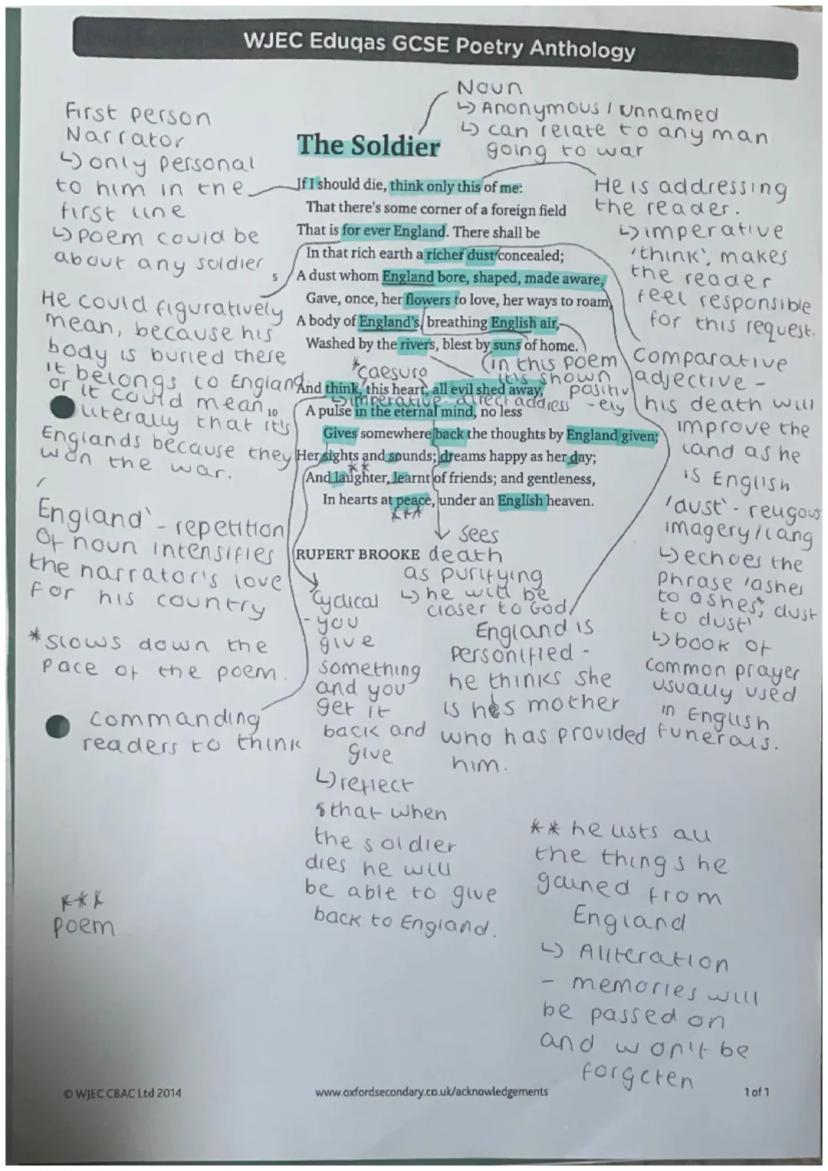 WJEC Eduqas GCSE Poetry Anthology
Noun
↳ Anonymous / unnamed
↳ can relate to any man
going to war
First person
Narrator
↳ only personal
to him in the
first line
↳ poem could be
about any soldier
The Soldier
If I should die, think only this of me:
That there's some corner of a foreign field
That is for ever England. There shall be
In that rich earth a richer dust concealed;
5 A dust whom England bore, shaped, made aware,
Gave, once, her flowers to love, her ways to roam,
A body of England's, breathing English air,
Washed by the rivers, blest by suns of home.
*caesura
(in this poem
it's shown
positiv
-ely
And think, this heart, all evil shed away,
↳ imperative direct address
10 A pulse in the eternal mind, no less
Gives somewhere back the thoughts by England given;
Her sights and sounds; dreams happy as her day;
**
And laughter, learnt of friends; and gentleness,
In hearts at peace, under an English heaven.
***
RUPERT BROOKE
He is addressing
the reader.
↳ imperative
'think', makes
the reader
feel responsible
for this request.
He could figuratively
mean, because his
body is buried there
it belongs to England
or it could mean
literally that it's
Englands because they
won the war.
Comparative
adjective -
his death will
improve the
land as he
is English
'dust' - reugous
imagery/lang
↳ echoes the
phrase 'ashes
to ashes, dust
to dust'
↳ book of
common prayer
usually used
in English
funerals.
England' - repetition
of noun intensifies
the narrator's love
for his country
*slows down the
pace of the poem.
commanding
readers to think
sees
death
as purifying
↳ he will be
closer to God
Cyclical
- you
give
something
and you
get it
back and
give
↳ reflect
s that when
the soldier
dies he will
be able to give
back to England.
England is
personified -
he thinks she
is hes mother
who has provided
him.
** he lists all
the things he
gained from
England
↳ Alliteration
- memories will
be passed on
and won't be
forgeten
***
poem
© WJEC CBAC Ltd 2014
www.oxfordsecondary.co.uk/acknowledgements
1 of 1